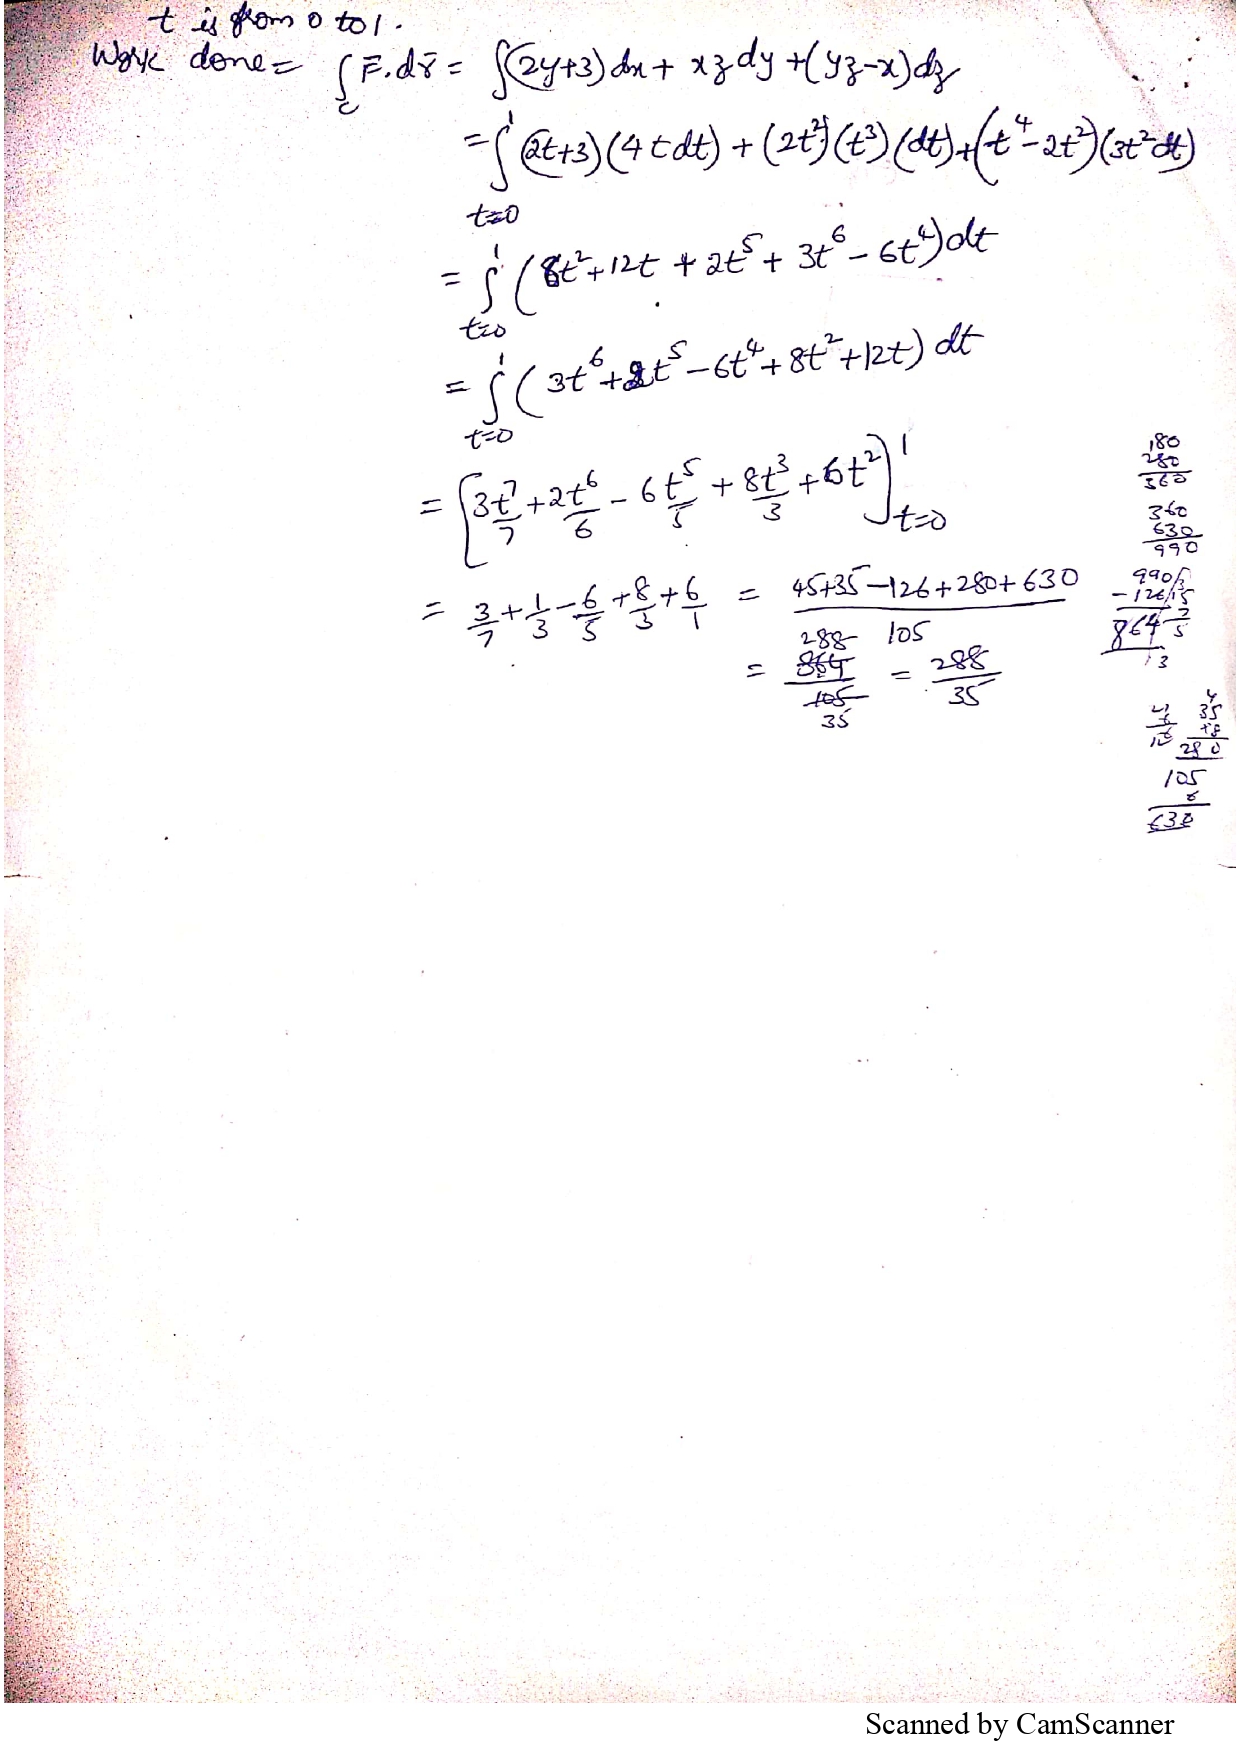 t is from 0 to 1.
Work done = ∫_C F̄.dr̄ = ∫(2y+3)dx + xz dy + (yz-x)dz
= ∫_{t=0}^{1} (2t+3)(4t dt) + (2t²)(t³)(dt) + (t⁴-2t²)(3t² dt)
= ∫_{t=0}^{1} (8t²+12t + 2t⁵ + 3t⁶ - 6t⁴)dt
= ∫_{t=0}^{1} (3t⁶+2t⁵-6t⁴+8t²+12t) dt
= [3t⁷/7 + 2t⁶/6 - 6t⁵/5 + 8t³/3 + 6t²]_{t=0}^{1}
= 3/7 + 1/3 - 6/5 + 8/3 + 6/1 = 45+35-126+280+630 / 105
= 864/105 288/35 = 288/35
180
280
360
360
630
990
990
-126
864
35
280
105
6
630
Scanned by CamScanner